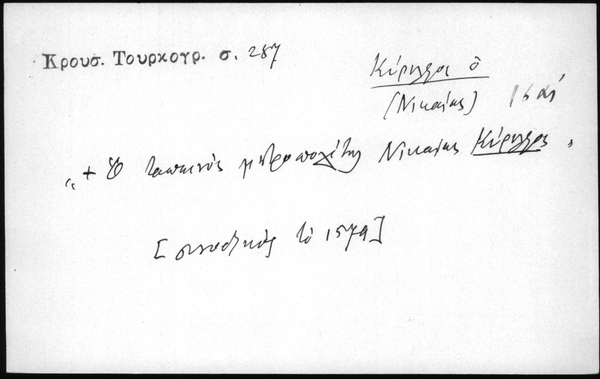 Κρουσ. Τουρκογρ. σ. 287
Κύριλλος ὁ
(Νικαίας)
„ + Ὁ ταπεινὸς μητροπολίτης Νικαίας Κύριλλος „
[συνοδικῶς τῷ 1579]